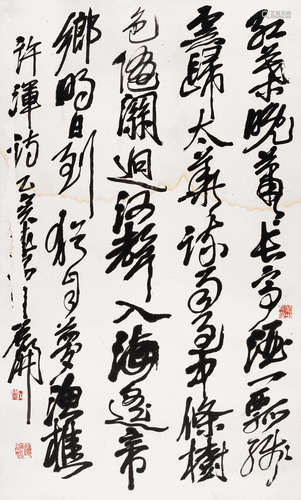 紅葉晚蕭蕭長亭酒一瓢殘
雲歸太華疏雨過中條樹
色隨關迥河聲入海遥帝
鄉明日到猶自夢漁樵
許渾詩乙亥